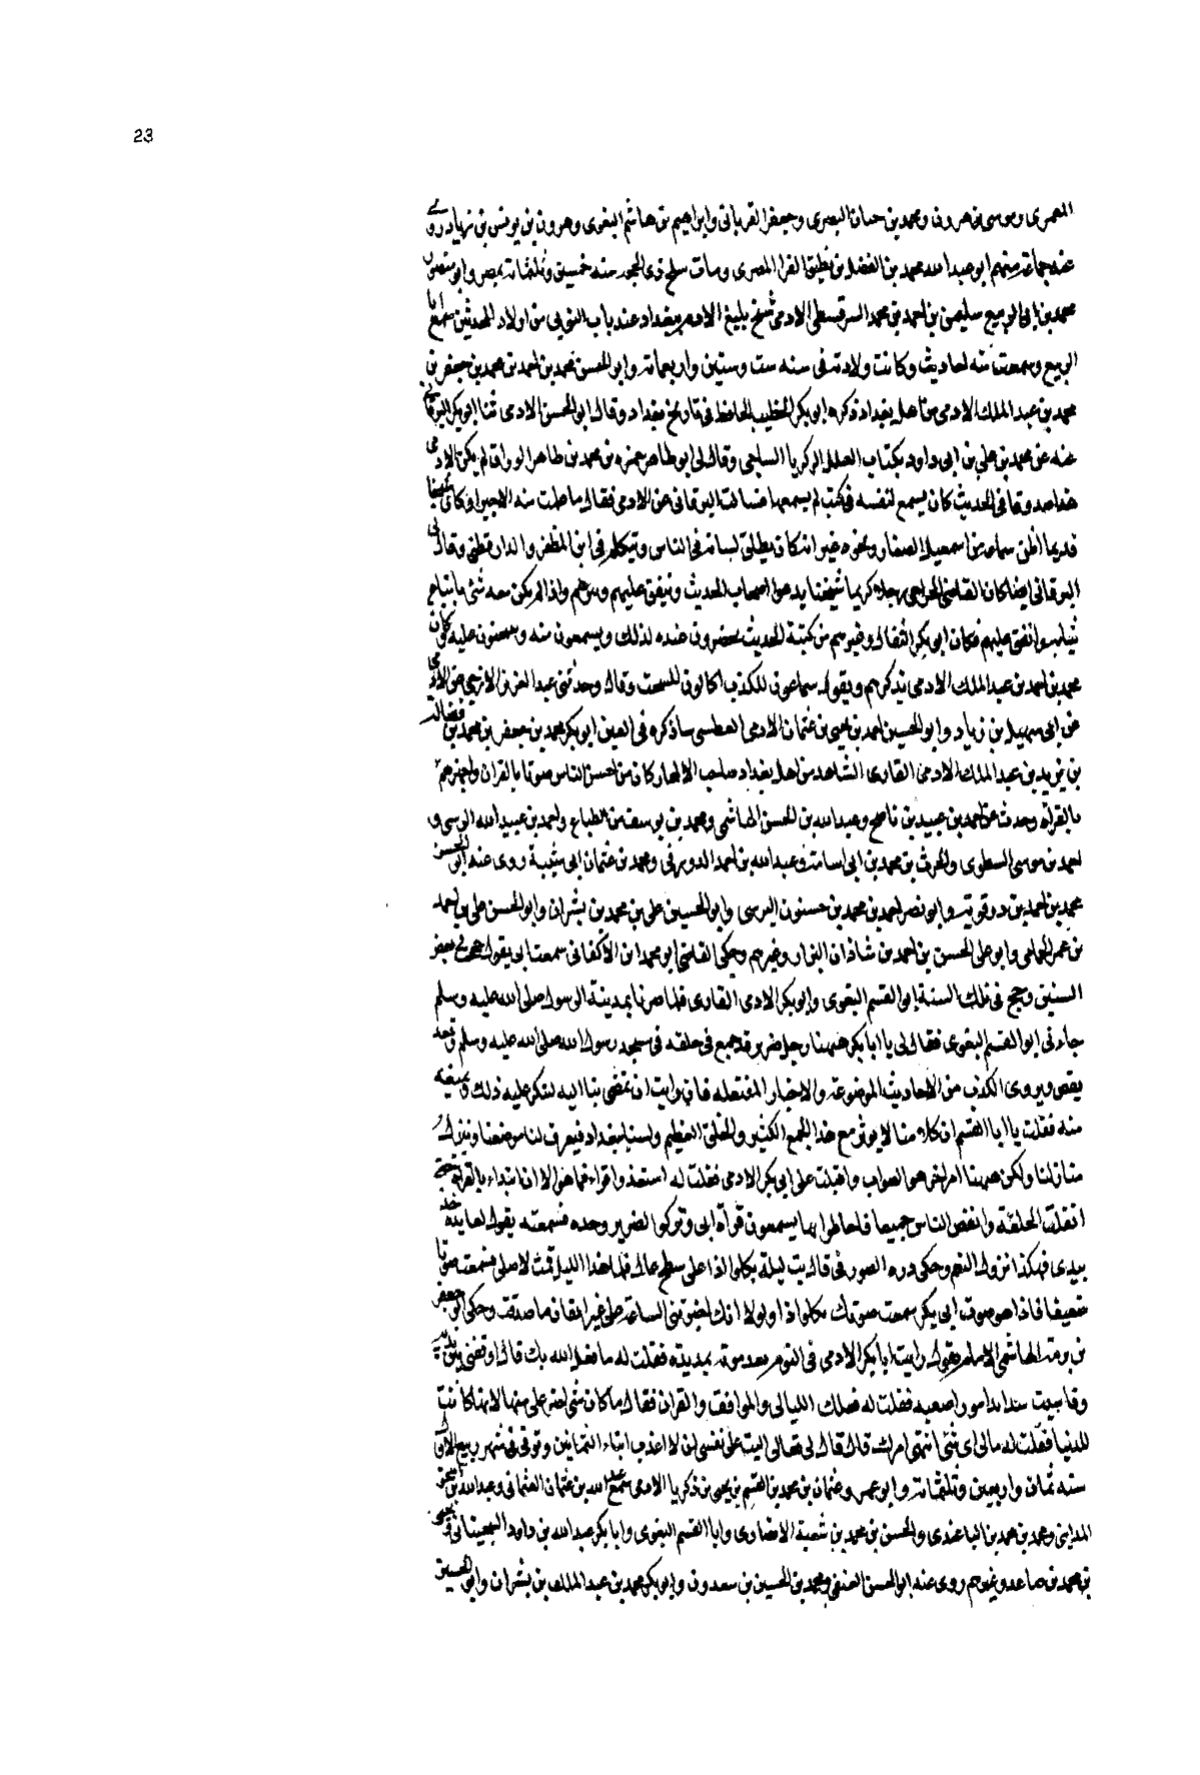 23
العمرى وموسى بن هرون ومحمد بن حسان البصرى وجعفر الفريابى وابراهيم بن هاشم البغوى وهرون بن يوسف بن زياد روى
عنه جماعة منهم ابو عبد الله محمد بن الفضل بن نظيف الفرا المصرى ومات سلخ ذى الحجة سنه خمسين وثلثماية بمصر وابو منصور
محمد بن ابى الربيع سليمن بن احمد بن محمد السرقسطى الادمى شيخ بليغ الادم ببغداد عند باب النوبى من اولاد المحدثين سمع ابا
الربيع وسمعت منه احاديث وكانت ولادته فى سنه ست وستين واربعماية وابو الحسن محمد بن احمد بن محمد بن جعفر بن
محمد بن عبد الملك الادمى من اهل بغداد ذكره ابو بكر الخطيب الحافظ فى تاريخ بغداد وقال ابو الحسن الادمى ثنا ابو بكر البرقانى
عنه عن محمد بن على بن ابى داود بكتاب العلل لزكريا الساجى وقال لى ابو طاهر حمزه بن محمد بن طاهر الوراق لم يكن الادمى
هذا صدوقا فى الحديث كان يسمع لنفسه فى كتب لم يسمعها فسالت البرقانى عن الادمى فقال ما علمت منه الا خيرا وكان شيخا
قديما اظن سماعه من اسمعيل الصفار ونحوه غير انه كان يطلق لسانه فى الناس ويتكلم فى ابن المظفر والدارقطنى وقال لى
البرقانى ايضا كان القاضى الجراحى رجلا كريما شيخنا يدعو اصحاب الحديث وينفق عليهم ويبرهم واذا لم يكن معه شئ باع
ثيابه وانفق عليهم فكان ابو بكر البقال وغيرهم من كتبة الحديث يحضرون عنده لذلك ويسمعون منه ويسحتون عليه كان
محمد بن احمد بن عبد الملك الادمى يذكرهم ويقول سماعون للكذب اكالون للسحت وقال وحدثنى عبد العزيز الازجى عن الادمى
عن ابى سهل بن زياد وابو الحسين احمد بن يحيى بن عثمان الادمى العطشى ساذكره فى العين ابو بكر محمد بن جعفر بن محمد بن فضالة
بن يزيد بن عبد الملك الادمى القارى الشاهد من اهل بغداد صاحب الالحان كان من احسن الناس صوتا بالقران واجهرهم
بالقراة وحدث عن احمد بن عبيد بن ناصح وعبد الله بن الحسن الهاشمى ومحمد بن يوسف بن الطباع واحمد بن عبيد الله النرسى و
احمد بن موسى السطوى والحرث بن محمد بن ابى اسامة وعبد الله بن احمد الدورقى ومحمد بن عثمان ابى شيبة روى عنه ابو الحسن
محمد بن احمد بن رزقويه وابو نصر احمد بن محمد بن حسنون النرسى وابو الحسين على بن محمد بن بشران وابو الحسن على بن احمد
بن عمر الحمامى وابو على الحسن بن احمد بن شاذان البزار وغيرهم وحكى القاضى ابو محمد ابن الاكفانى سمعت ابى يقول حججت فى بعض
السنين وحج فى تلك السنة ابو القسم البغوى وابو بكر الادمى القارى فلما صرنا بمدينة الرسول صلى الله عليه وسلم
جاءنى ابو القسم البغوى فقال لى يا ابا بكر ههنا رجل ضرير قد جمع فى حلقه فى مسجد رسول الله صلى الله عليه وسلم وقعد
يقص ويروى الكذب من الاحاديث الموضوعة والاخبار المفتعله فان رايت ان تمضى بنا اليه لننكر عليه ذلك ونمنعه
منه فقلت يا ابا القسم ان كلامنا لا يوثر مع هذا الجمع الكثير والخلق العظيم ولسنا ببغداد فيعرف لنا موضعنا وننزل
منازلنا ولكن ههنا امر اخر هو الصواب واقبلت على ابى بكر الادمى فقلت له استعذ واقراء فما هو الا ان ابتداء بالقراة حتى
انفلت الحلقة وانفض الناس جميعا فاحاطوا بنا يسمعون قراة ابى وتركوا الضرير وحده فسمعته يقول لقايده خذ
بيدى فهكذا تزول النعم وحكى دره الصوفى قال بت ليلة بكلواذا على سطح عال فلما هدا الليل قمت لاصلى فسمعت صوتا
ضعيفا فاذا هو صوت ابى بكر
بن بريه الهاشمى الامام يقول رايت ابا بكر الادمى فى النوم بعد موته بمديدة فقلت له ما فعل الله بك قال اوقفنى بين يديه
وقاسيت شدايدا وامورا صعبه فقلت له فتلك الليالى والمواقف والقران فقال ما كان شئ اضر على منها لانها كانت
للدنيا فقلت له فالى اى شئ انتهى امرك قال قال لى تعالى اليت على نفسى ان لا اعذب ابناء الثمانين وتوفى فى شهر ربيع الاول
سنه ثمان واربعين وثلثماية وابو عمرو عثمان بن محمد بن القسم بن يحيى بن زكريا الادمى سمع عبد الله بن عثمان العثمانى وعبد الله بن اسحق
المداينى ومحمد بن محمد بن الباغندى والحسن بن محمد بن شعبة الانصارى وابا القسم البغوى وابا بكر عبد الله بن داود السجستانى ويحيى
بن محمد بن صاعد وغيرهم روى عنه ابو الحسن العتيقى ومحمد بن الحسين بن سعدون وابو بكر محمد بن عبد الملك بن بشران وابو الحسين